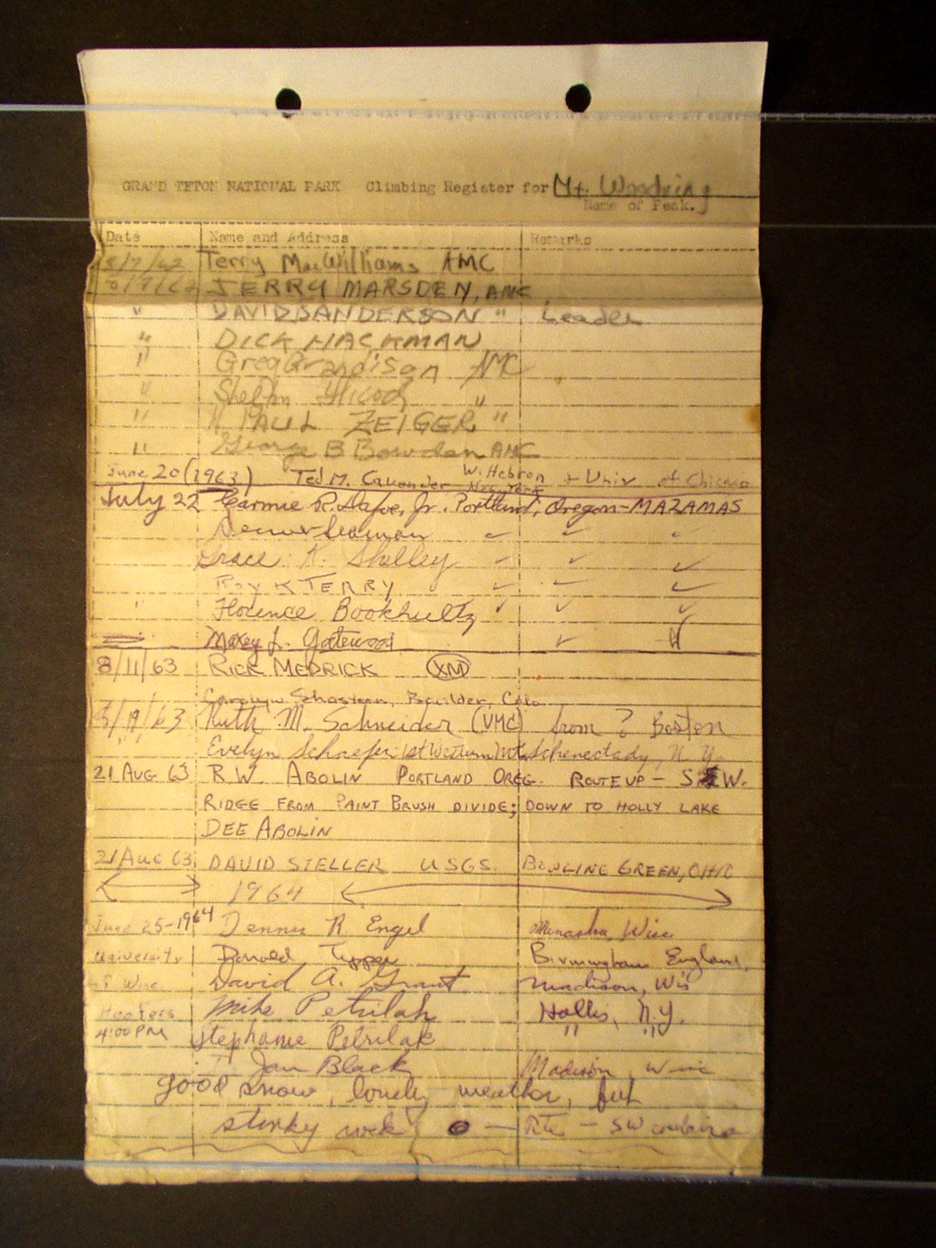 GRAND TETON NATIONAL PARK Climbing Register for Mt. Woodring
Name of Peak.
Date Name and Address Remarks
8/7/62 Terry MacWilliams AMC
8/7/62 JERRY MARSDEN, AMC
" DAVID SANDERSON " Leader
" DICK HACKMAN
" Greg Grandison AMC
" "
" H. PAUL ZEIGER "
" George B. Bowden AMC
June 20 (1963) Ted M. Cavander W. Hebron New York + Univ of Chicago
July 22 R. Dafoe, Jr. Portland, Oregon - MAZAMAS
Grace K. Shelley
ROY K TERRY
" Florence Bookhultz
Maxey J. Gatewood
8/11/63 RICK MEDRICK XM
Carolyn Boulder, Colo
8/19/63 Ruth M. Schneider (VMC) from ? Boston
" " Evelyn Schaefer Schenectady, N.Y.
21 AUG 63 R.W. ABOLIN PORTLAND OREG. ROUTE UP - S W.
RIDGE FROM PAINT BRUSH DIVIDE; DOWN TO HOLLY LAKE
DEE ABOLIN
21 AUG 63 DAVID STELLER USGS. BOWLING GREEN, OHIO
1964
June 25-1964 Dennis R. Engel Menasha, Wisc
University Donald Tipper Birmingham England,
of Wisc David A. Grant Madison, Wis
Hoofers Mike Petrilak Hollis, N.Y.
4:00 PM Stephanie Petrilak " "
Jan Black Madison, Wisc
good snow, lovely weather, but
stinky rock - Rte - SW couloirs